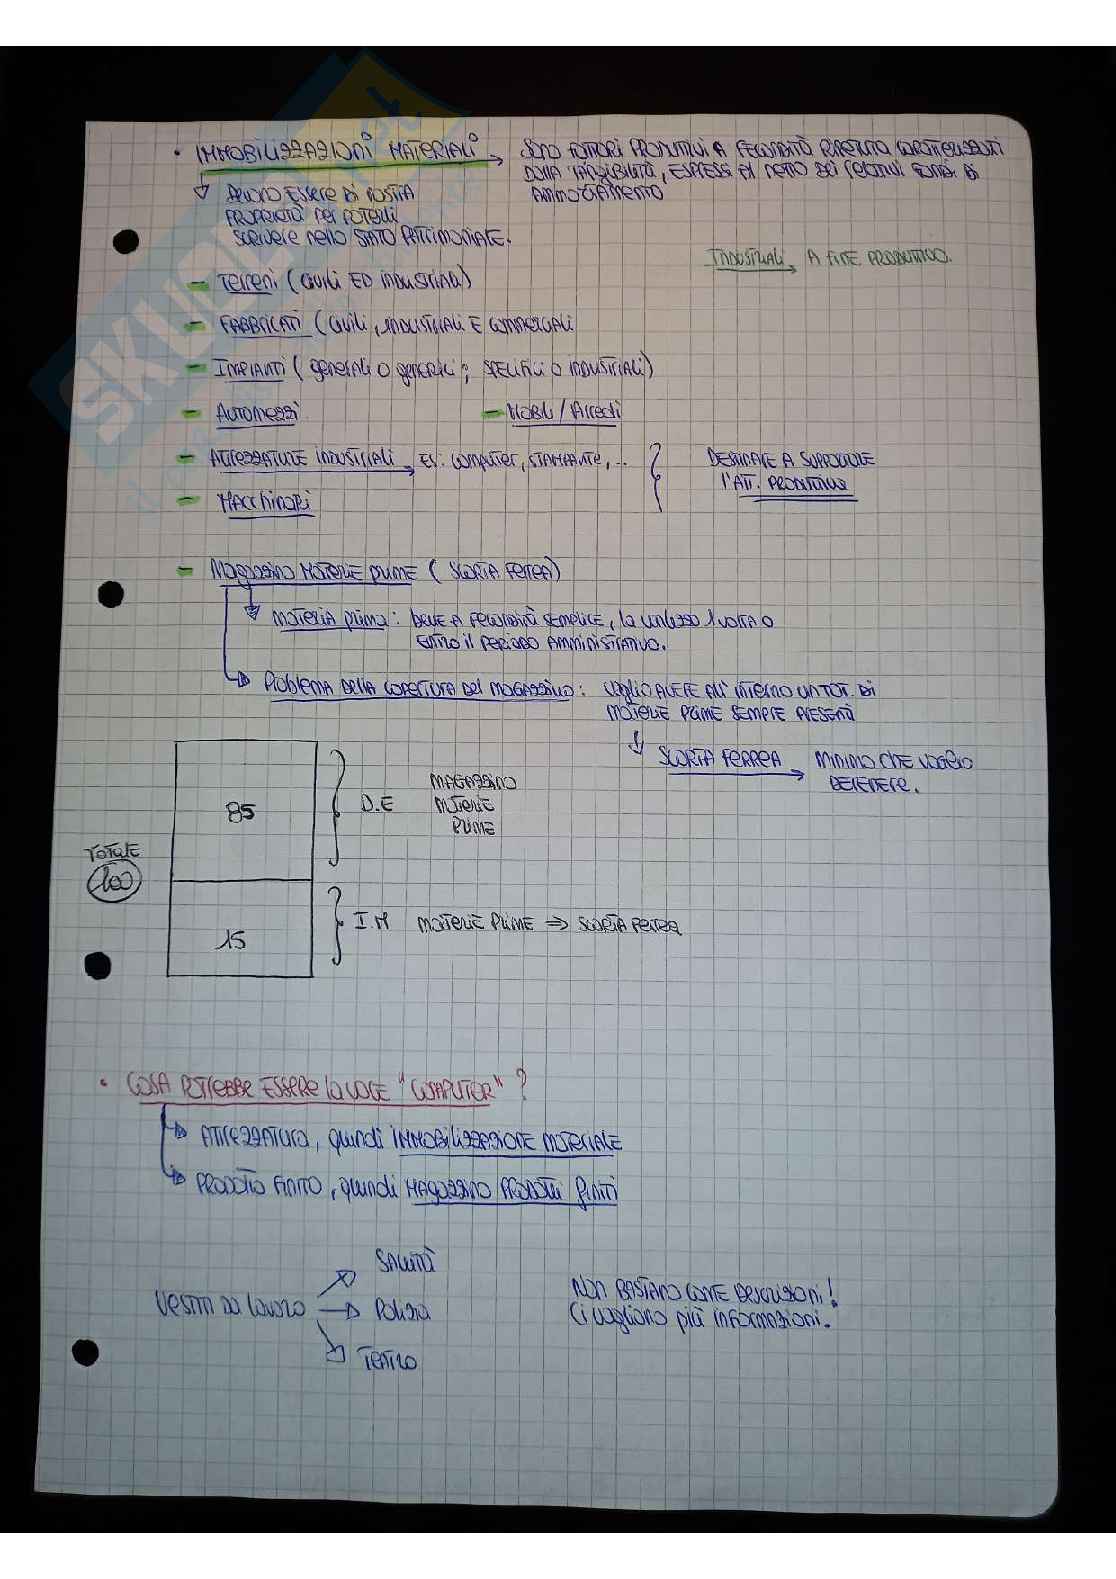 • IMMOBILIZZAZIONI MATERIALI → SONO FATTORI PRODUTTIVI A FECONDITÀ RIPETUTA CARATTERIZZATI
DALLA TANGIBILITÀ, ESPRESSI AL NETTO DEI RELATIVI FONDI DI
AMMORTAMENTO
DEVONO ESSERE DI NOSTRA
PROPRIETÀ PER POTERLI
SCRIVERE NELLO STATO PATRIMONIALE.
INDUSTRIALI → A FINE PRODUTTIVO.
- TERRENI (CIVILI ED INDUSTRIALI)
- FABBRICATI (CIVILI, INDUSTRIALI E COMMERCIALI
- IMPIANTI (generali o generici; SPECIFICI O INDUSTRIALI)
- AUTOMEZZI - Mobili/Arredi
- ATTREZZATURE INDUSTRIALI → ES: COMPUTER, STAMPANTE, ...
DESTINATE A SUPPORTO DEL
L'ATT. PRODUTTIVA
- MACCHINARI
- MAGAZZINO MATERIE PRIME (SCORTA FERREA)
MATERIA PRIMA: BENE A FECONDITÀ SEMPLICE, la utilizzo 1 VOLTA O
ENTRO IL PERIODO AMMINISTRATIVO.
PROBLEMA DELLA COPERTURA DEL MAGAZZINO: VOGLIO AVERE ALL'INTERNO UN TOT. DI
MATERIE PRIME SEMPRE PRESENTI
SCORTA FERREA → MINIMO CHE VOGLIO
DETENERE.
85
D.E
MAGAZZINO
MATERIE
PRIME
TOTALE
100
15
I.M MATERIE PRIME ⇒ SCORTA FERREA
• COSA POTREBBE ESSERE la VOCE "COMPUTER"?
ATTREZZATURA, quindi IMMOBILIZZAZIONE MATERIALE
PRODOTTO FINITO, quindi MAGAZZINO PRODOTTI FINITI
SANITÀ
VESTITI DA LAVORO → POLIZIA
TEATRO
NON BASTANO COME DESCRIZIONI!
Ci vogliono più informazioni.